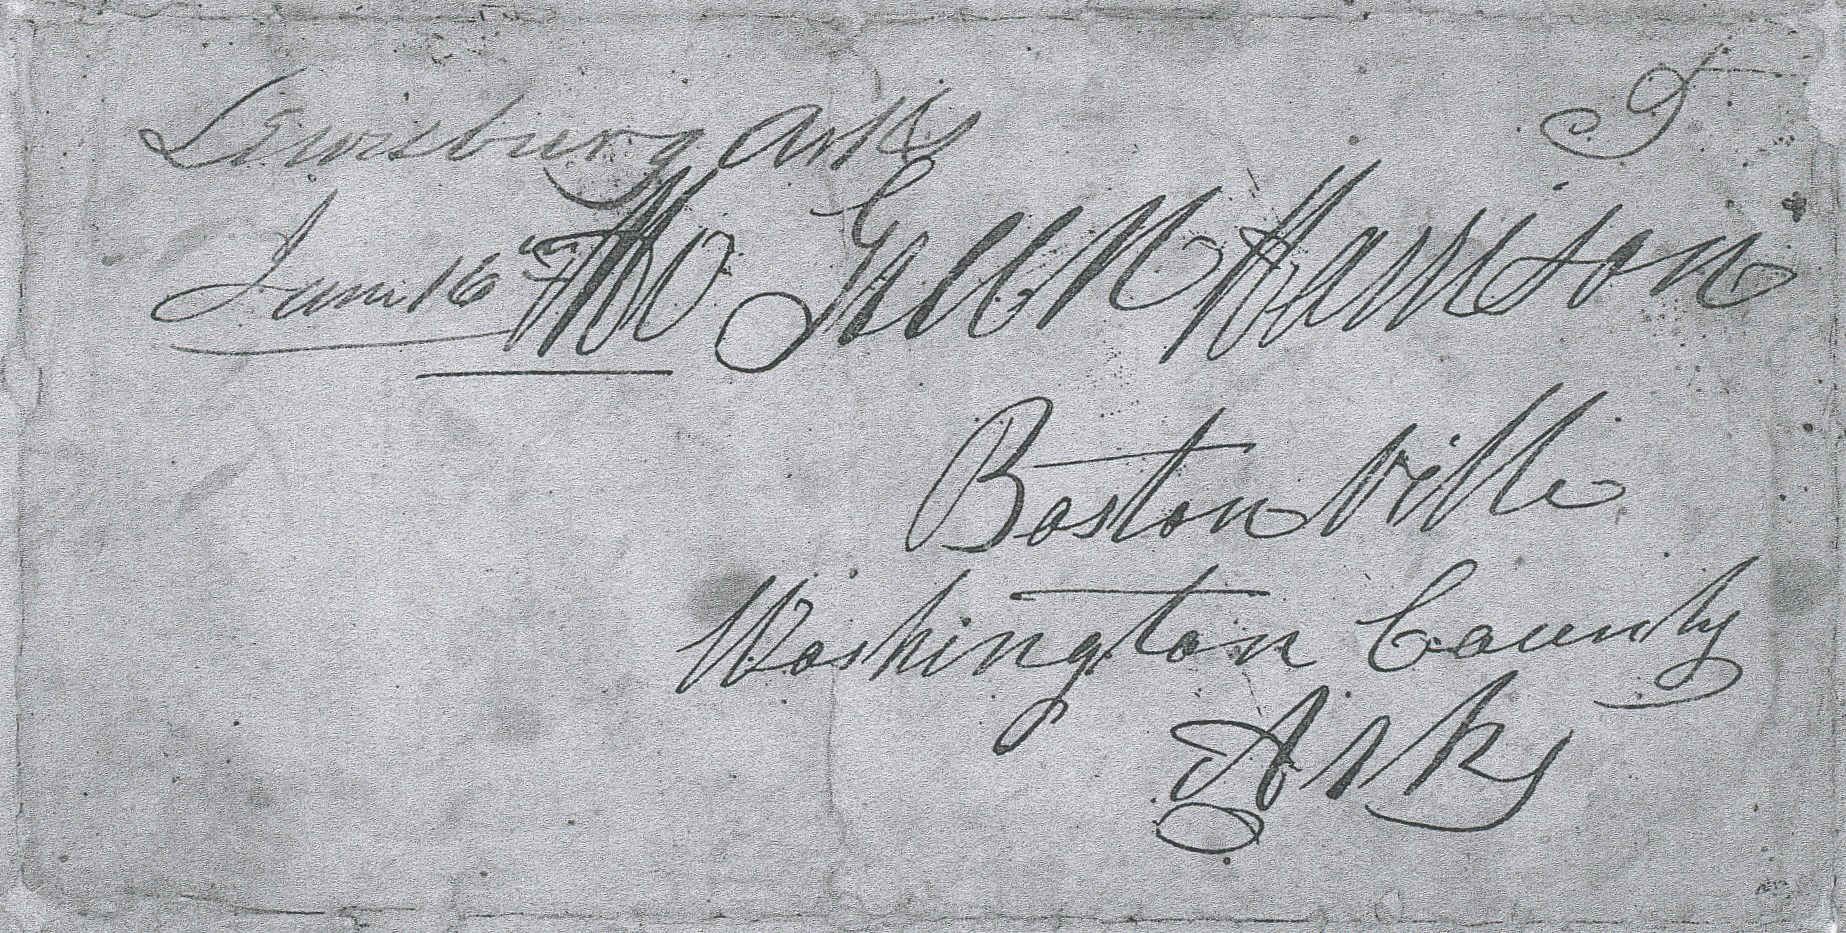 Lewisburg Arks
5
June 16th
Mo Green Harrison
Boston Ville
Washington County
Arks